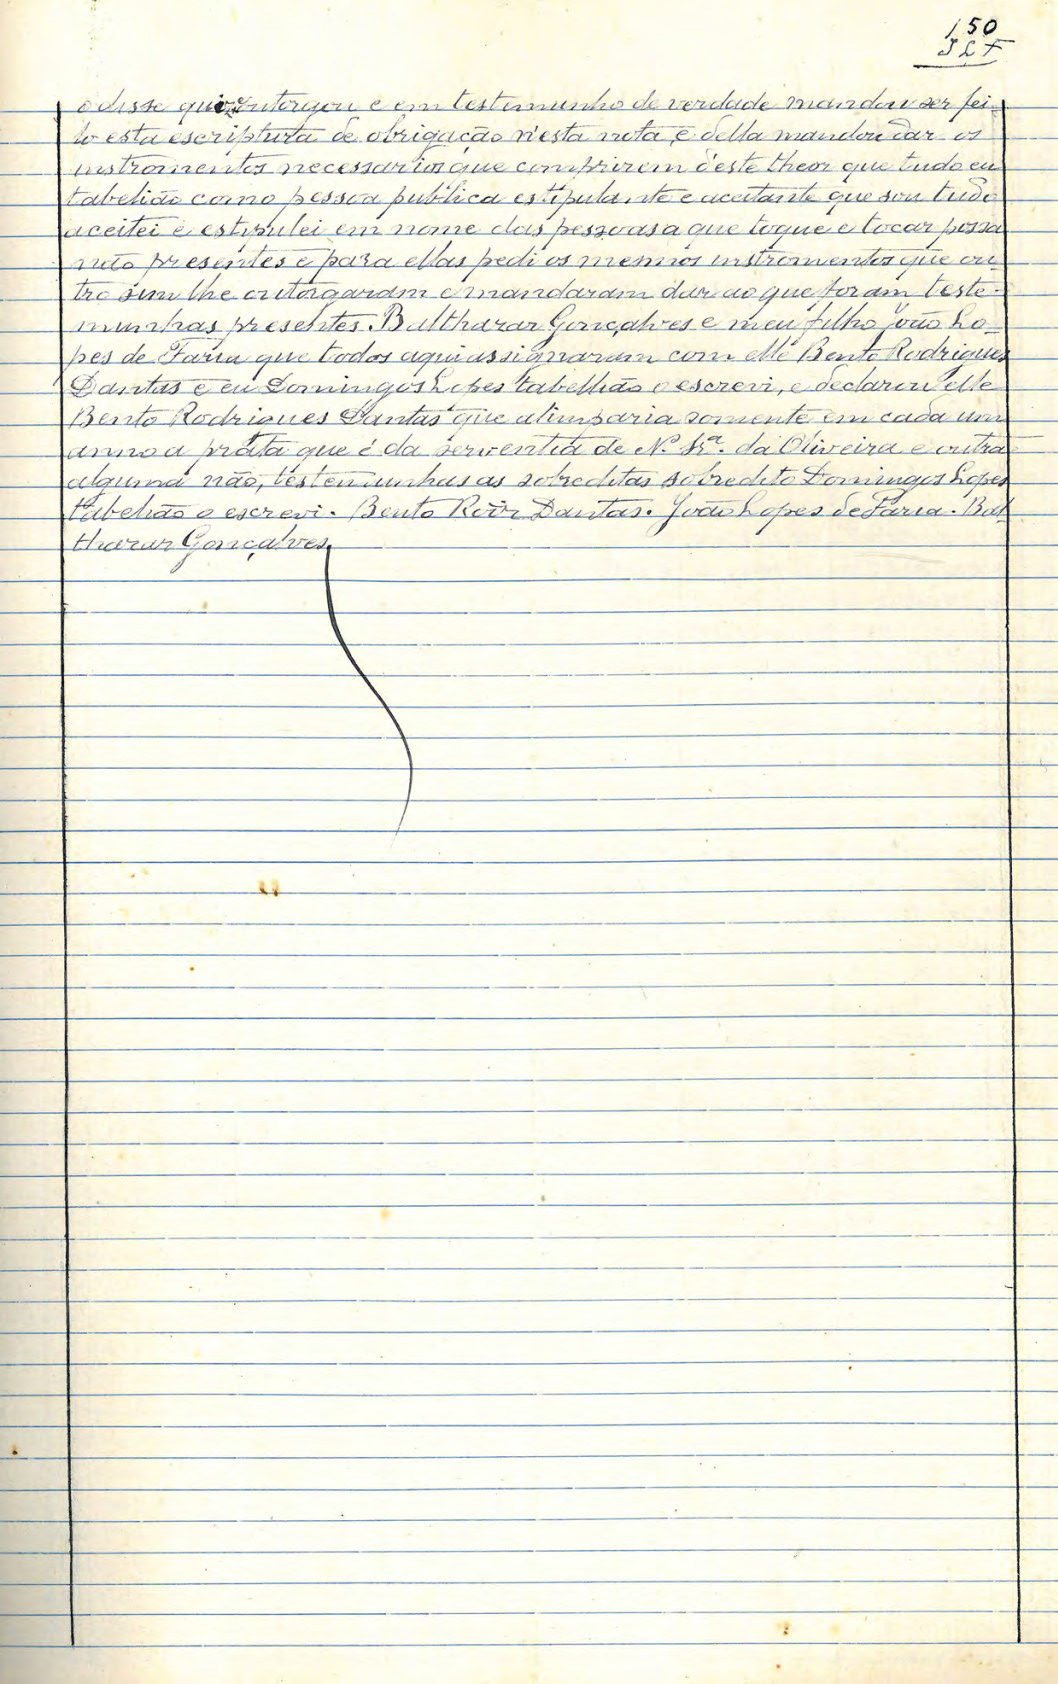 150
JLF
o disse quis e outorgou e em testemunho de verdade mandou ser fei-
to esta escriptura de obrigação n'esta nota, e della mandou dar os
instromentos necessarios que comprirem d'este theor que tudo eu
tabelião como pessoa publica estipulante e aceitante que sou tudo
aceitei e estipulei em nome das pessoas a que toque e tocar possa
não presentes e para ellas pedi os mesmos instromentos que ou-
tro sim lhe outorgaram e mandaram dar ao que foram teste-
munhas presentes. Balthazar Gonçalves e meu filho João Lo-
pes de Faria que todos aqui assignaram com elle Bento Rodrigues
Dantas e eu Domingos Lopes tabelhão o escrevi, e declarou elle
Bento Rodrigues Dantas que alimparia somente em cada um
anno a prata que é da serventia de N. Sr.ª da Oliveira e outra
alguma não, testemunhas as sobreditas sobredito Domingos Lopes
tabelião o escrevi. Bento Roiz Dantas. João Lopes de Faria. Bal-
thazar Gonçalves,